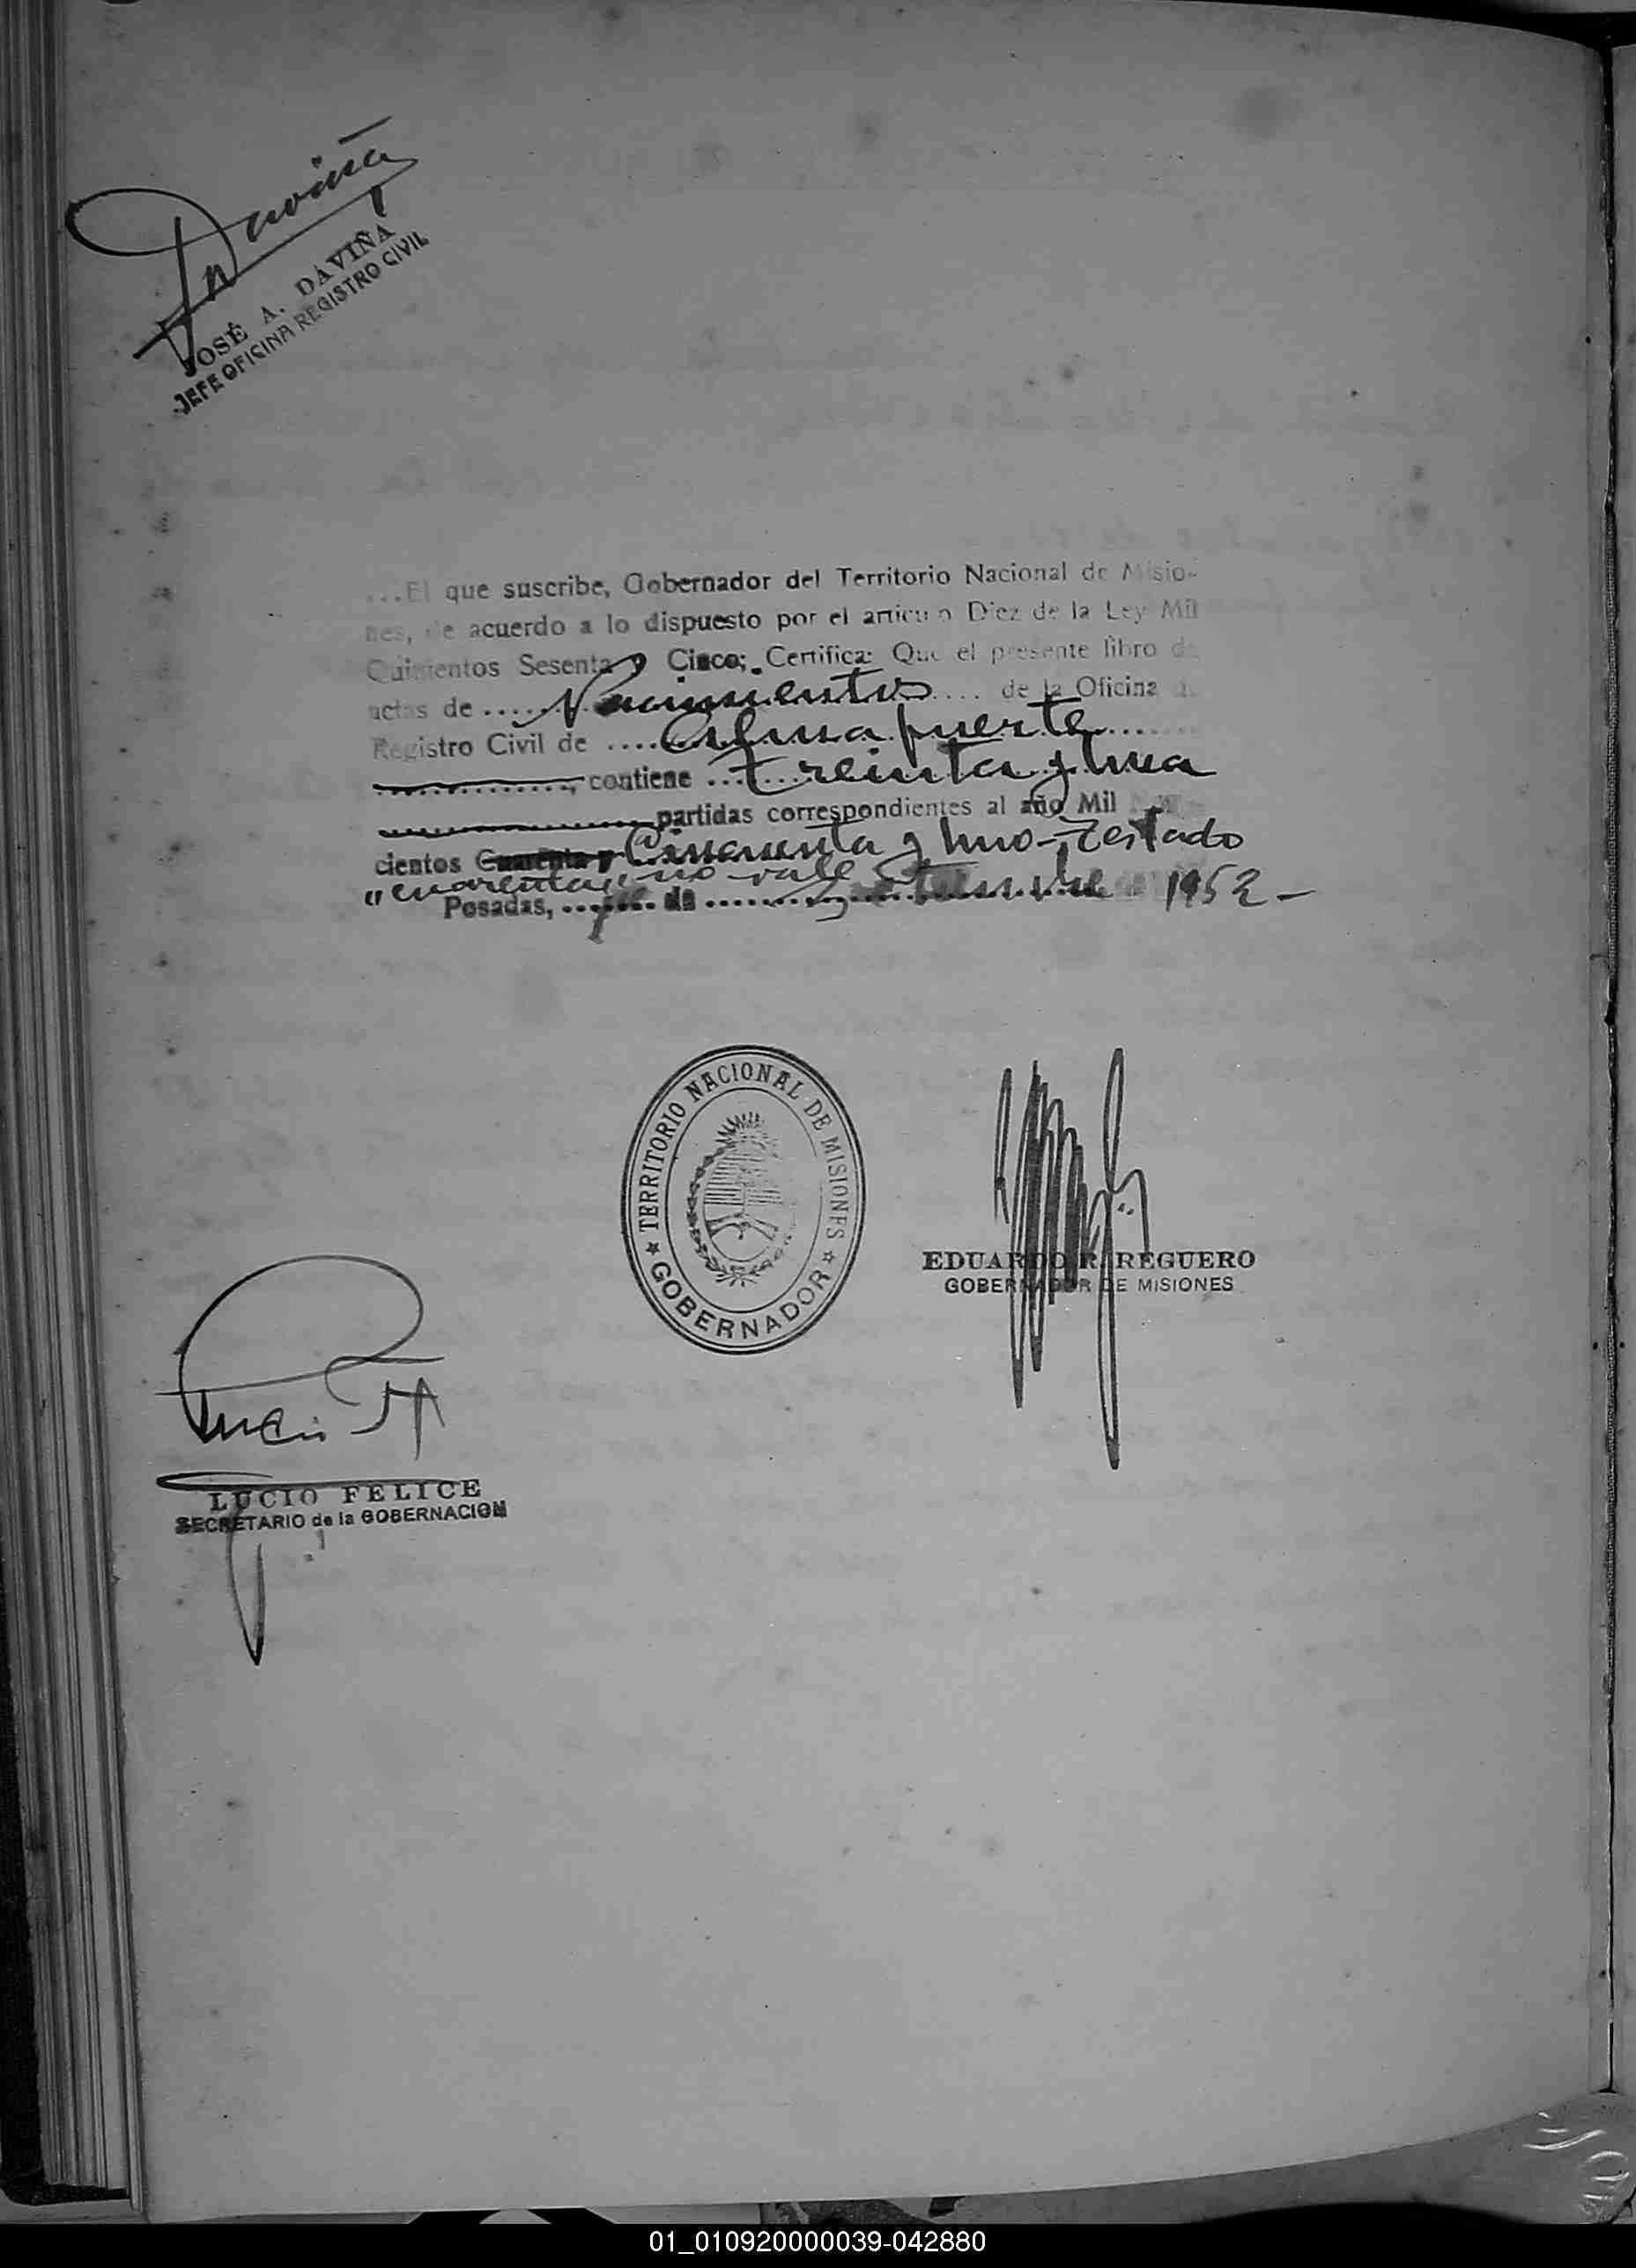 Daviña
JOSÉ A. DAVIÑA
JEFE OFICINA REGISTRO CIVIL
...El que suscribe, Gobernador del Territorio Nacional de Misio-
nes, de acuerdo a lo dispuesto por el artículo Diez de la Ley Mil
Quinientos Sesenta y Cinco; Certifica: Que el presente libro de
actas de ...... Nacimientos .... de la Oficina de
Registro Civil de .... Almafuerte ......
............, contiene ... treinta y una
............ partidas correspondientes al año Mil
cientos Cuarenta y Cincuenta y uno - Testado
"cuarenta y" no vale
Posadas, ...... de ...... 1952 -
TERRITORIO NACIONAL DE MISIONES
GOBERNADOR
EDUARDO R. REGUERO
GOBERNADOR DE MISIONES
LUCIO FELICE
SECRETARIO de la GOBERNACION
01_010920000039-042880